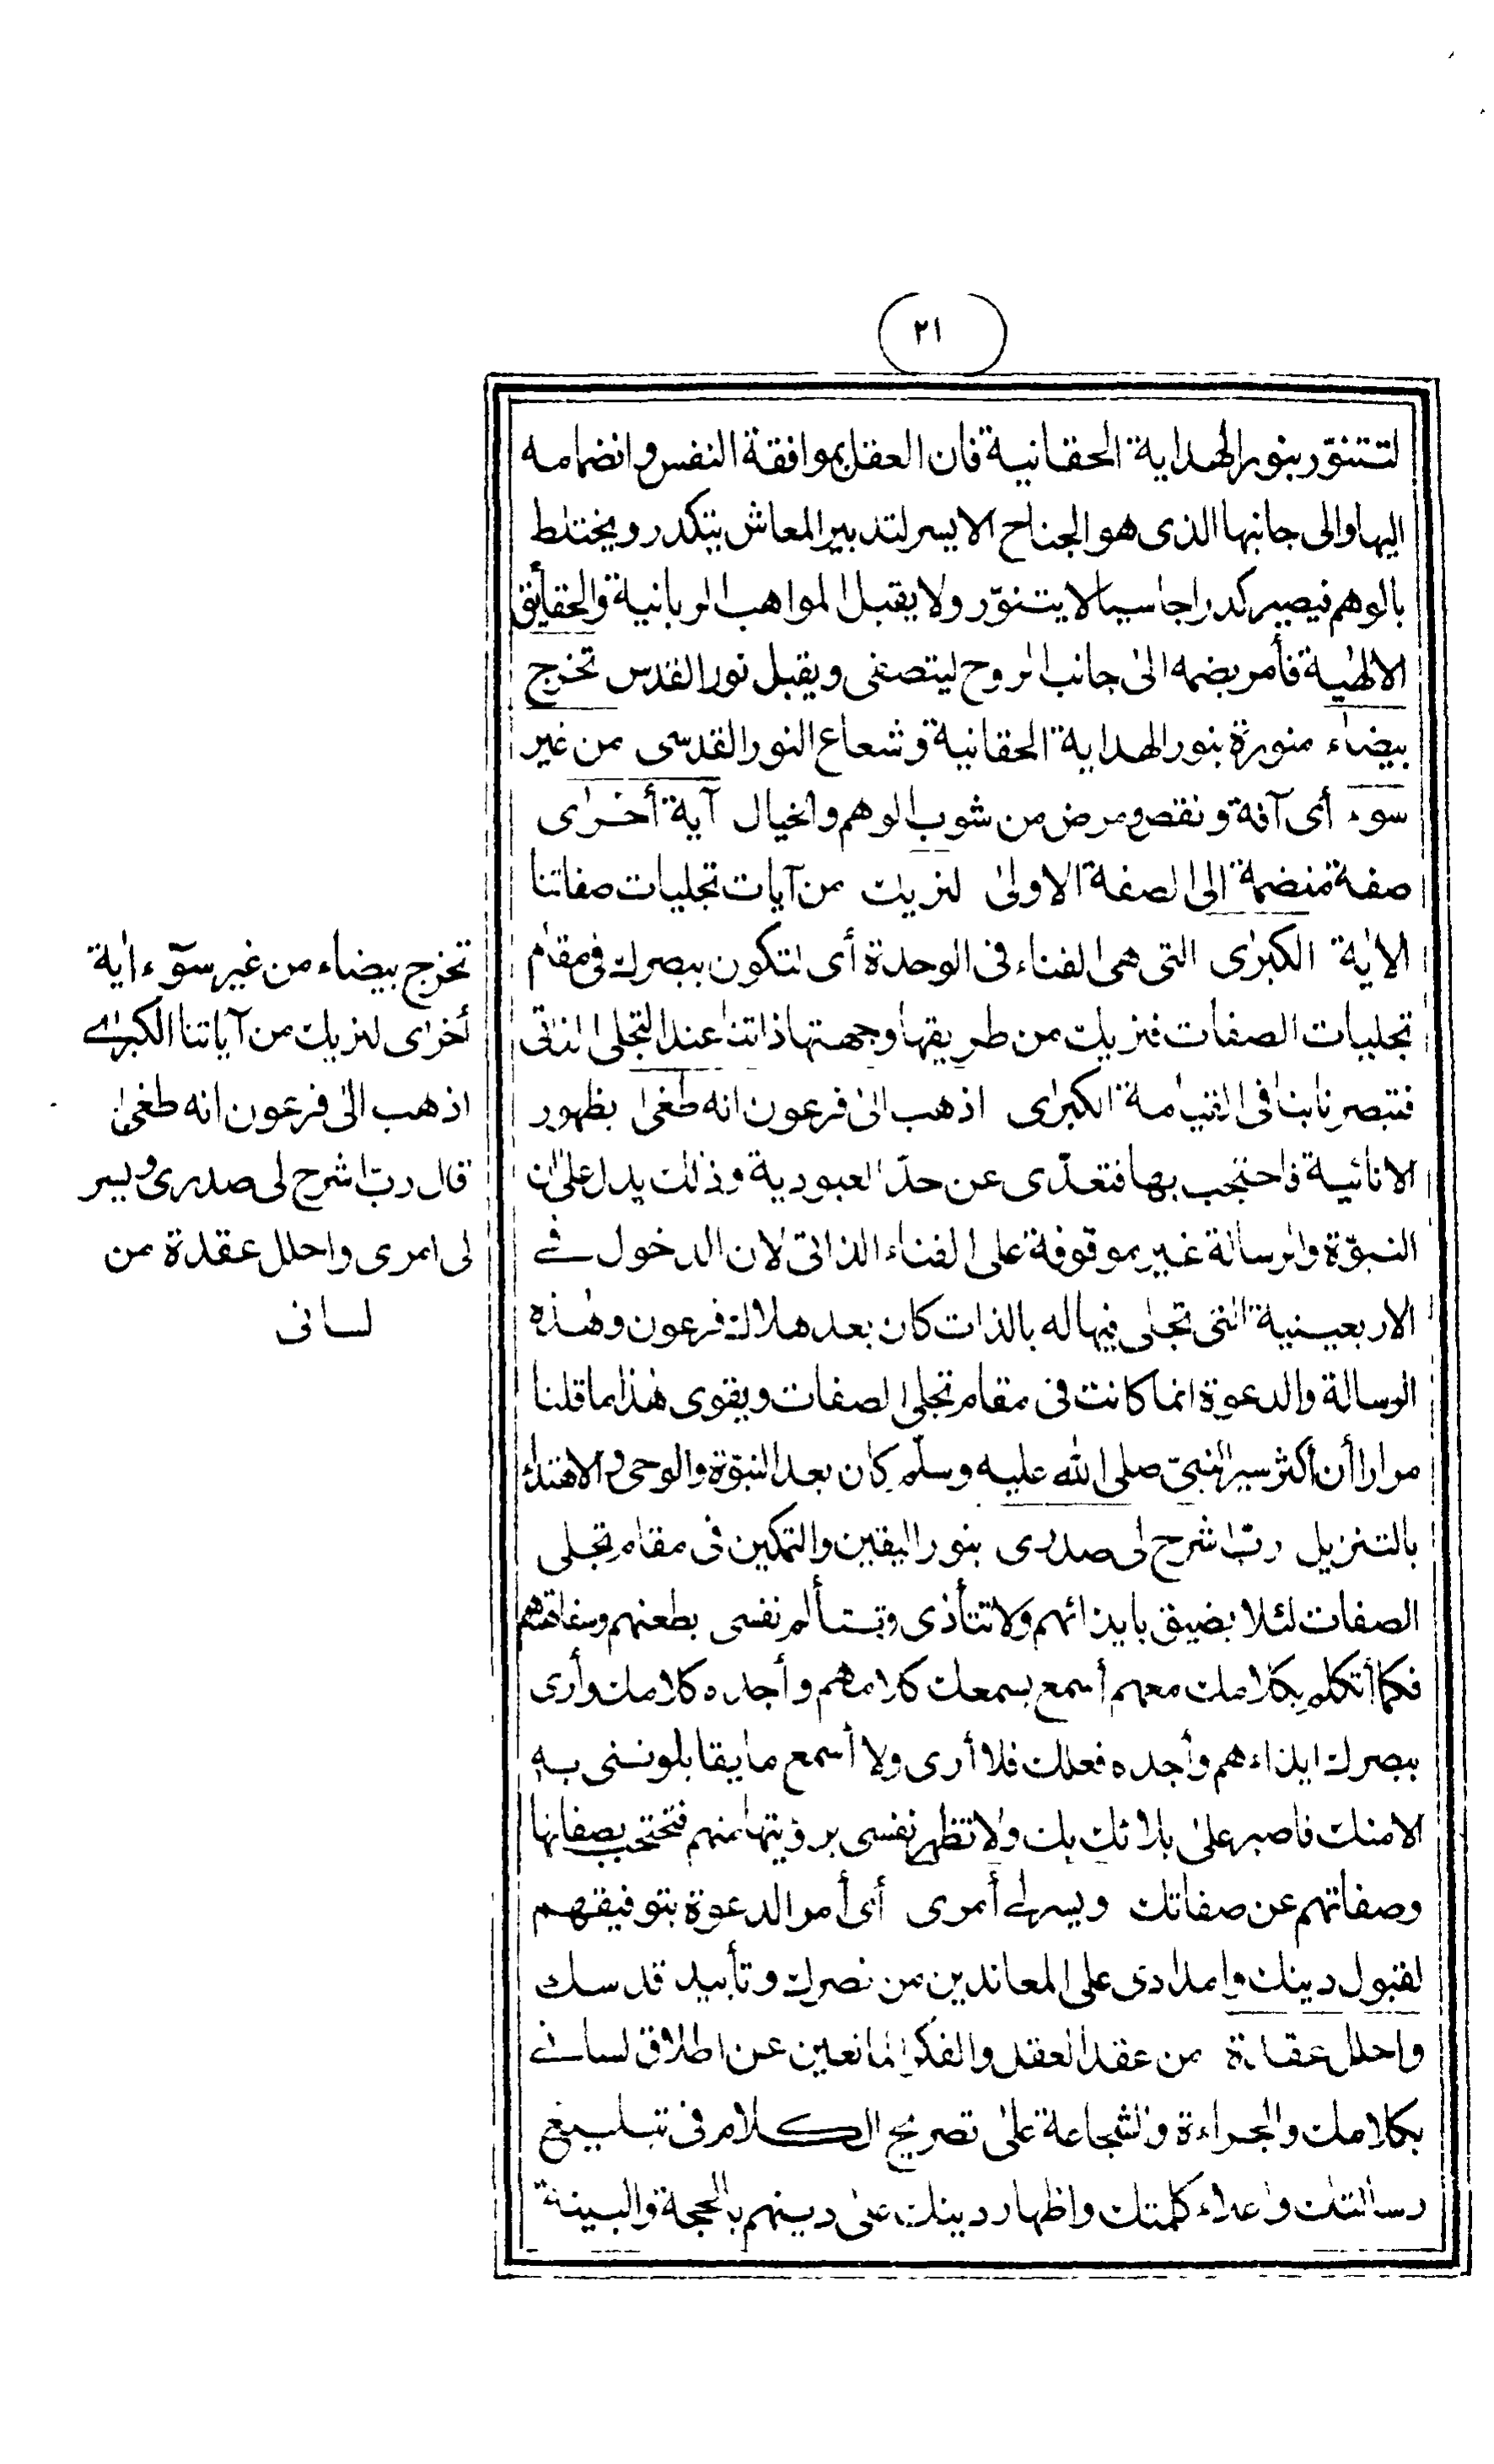 ٢١
لتتنوّر بنور الهداية الحقانية فان العقل بموافقة النفس وانضمامه
اليها والى جانبها الذى هو الجناح الايسر لتدبير المعاش يتكدر ويختلط
بالوهم فيصير كدرا جاسيا لا يتنوّر ولا يقبل المواهب الربانية والحقايق
الالهية فأمر بضمه الى جانب الروح ليتصفى ويقبل نور القدس تخرج
بيضاء منورة بنور الهداية الحقانية وشعاع النور القدسى من غير
سوء أى آفة ونقص ومرض من شوب الوهم والخيال آية أخرى
صفة منضمة الى الصفة الاولى لنريك من آيات تجليات صفاتنا
الاية الكبرى التى هى الفناء فى الوحدة أى لتكون ببصرك فى مقام
تجليات الصفات فنريك من طريقها وجهتها ذاتنا عند التجلى الذاتى
فتبصرنا بنا فى القيامة الكبرى اذهب الى فرعون انه طغى بظهور
الانائية فاحتجب بها فتعدّى عن حدّ العبودية وذلك يدل على ان
النبوّة والرسالة غير موقوفة على الفناء الذاتى لان الدخول فى
الاربعينية التى تجلى فيها له بالذات كان بعد هلاك فرعون وهذه
الرسالة والدعوة انما كانت فى مقام تجلى الصفات ويقوى هذا ما قلنا
مرارا أن أكثر سير النبىّ صلى الله عليه وسلّم كان بعد النبوّة والوحى والاهتداء
بالتنزيل ربّ اشرح لى صدرى بنور اليقين والتمكين فى مقام تجلى
الصفات لئلا يضيق بايذائهم ولا تتأذى وتتألم نفسى بطعنهم وسفاهتهم
فكما أتكلم بكلامك معهم أسمع بسمعك كلامهم وأجده كلامك وأرى
ببصرك ايذاءهم وأجده فعلك فلا أرى ولا أسمع ما يقابلوننى به
الا منك فاصبر على بلائك بك ولا تظهر نفسى برؤيتها منهم فتحتجب بصفاتها
وصفاتهم عن صفاتك ويسر لى أمرى أى أمر الدعوة بتوفيقهم
لقبول دينك وامدادى على المعاندين من نصرك وتأييد قدسك
واحلل عقدة من عقد العقل والفكر المانعين عن اطلاق لسانى
بكلامك والجراءة والشجاعة على تصريح الكلام فى تبليغ
رسالتك واعلاء كلمتك واظهار دينك على دينهم بالحجة والبينة
تخرج بيضاء من غير سوٓء اية
أخرى لنريك من آياتنا الكبرى
اذهب الى فرعون انه طغى
قال ربّ اشرح لى صدرى ويسر
لى امرى واحلل عقدة من
لسانى